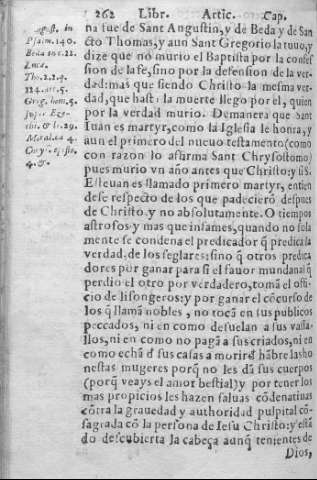 262 Libr. Artic. Cap.
na fue de Sant Augustin, y de Beda y de San
cto Thomas, y aun Sant Gregorio la tuuo, y
dize que no murio el Baptista por la confes
sion de la fe, sino por la defension de la ver-
dad: mas que siendo Christo la mesma ver-
dad, que hasta la muerte llego por el, quien
por la verdad murio. Demanera que Sant
Iuan es martyr, como la Iglesia le honra, y
aun el primero del nueuo testamento (como
con razon lo afirma Sant Chrysostomo)
pues murio vn año antes que Christo: y si S.
Esteuan es llamado primero martyr, entien
dese respecto de los que padecierō despues
de Christo y no absolutamente. O tiempos
astrosos y mas que infames, quando no sola
mente se condena el predicador q̃ predica la
verdad, de los seglares: sino q̃ otros predica
dores por ganar para si el fauor mundanal q̃
perdio el otro por verdadero, tomã el offi-
cio de lisongeros: y por ganar el cōcurso de
los q̃ llamã nobles, no tocã en sus publicos
peccados, ni en como desuelan a sus vassa-
llos, ni en como no pagã a sus criados, ni en
como echã d̃ sus casas a morir d̃ hãbre las ho
nestas mugeres porq̃ no les dã sus cuerpos
(porq̃ veays el amor bestial) y por tener los
mas propicios les hazen saluas cōdenatiuas
cōtra la grauedad y authoridad pulpital cō-
sagrada cō la persona de Iesu Christo: y estã
do descubierta la cabeça aunq̃ tenientes de
Dios,
August. in
Psalm. 140.
Beda to. c. 22.
Luca.
Tho. 2. 2. q.
124. art. 5.
Greg. hom. 5.